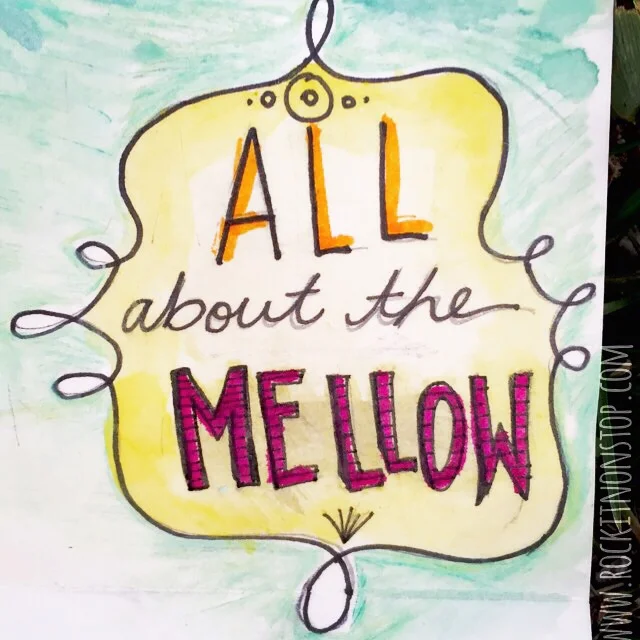 ALL
about the
MELLOW
WWW.ROCKITNONSTOP.COM